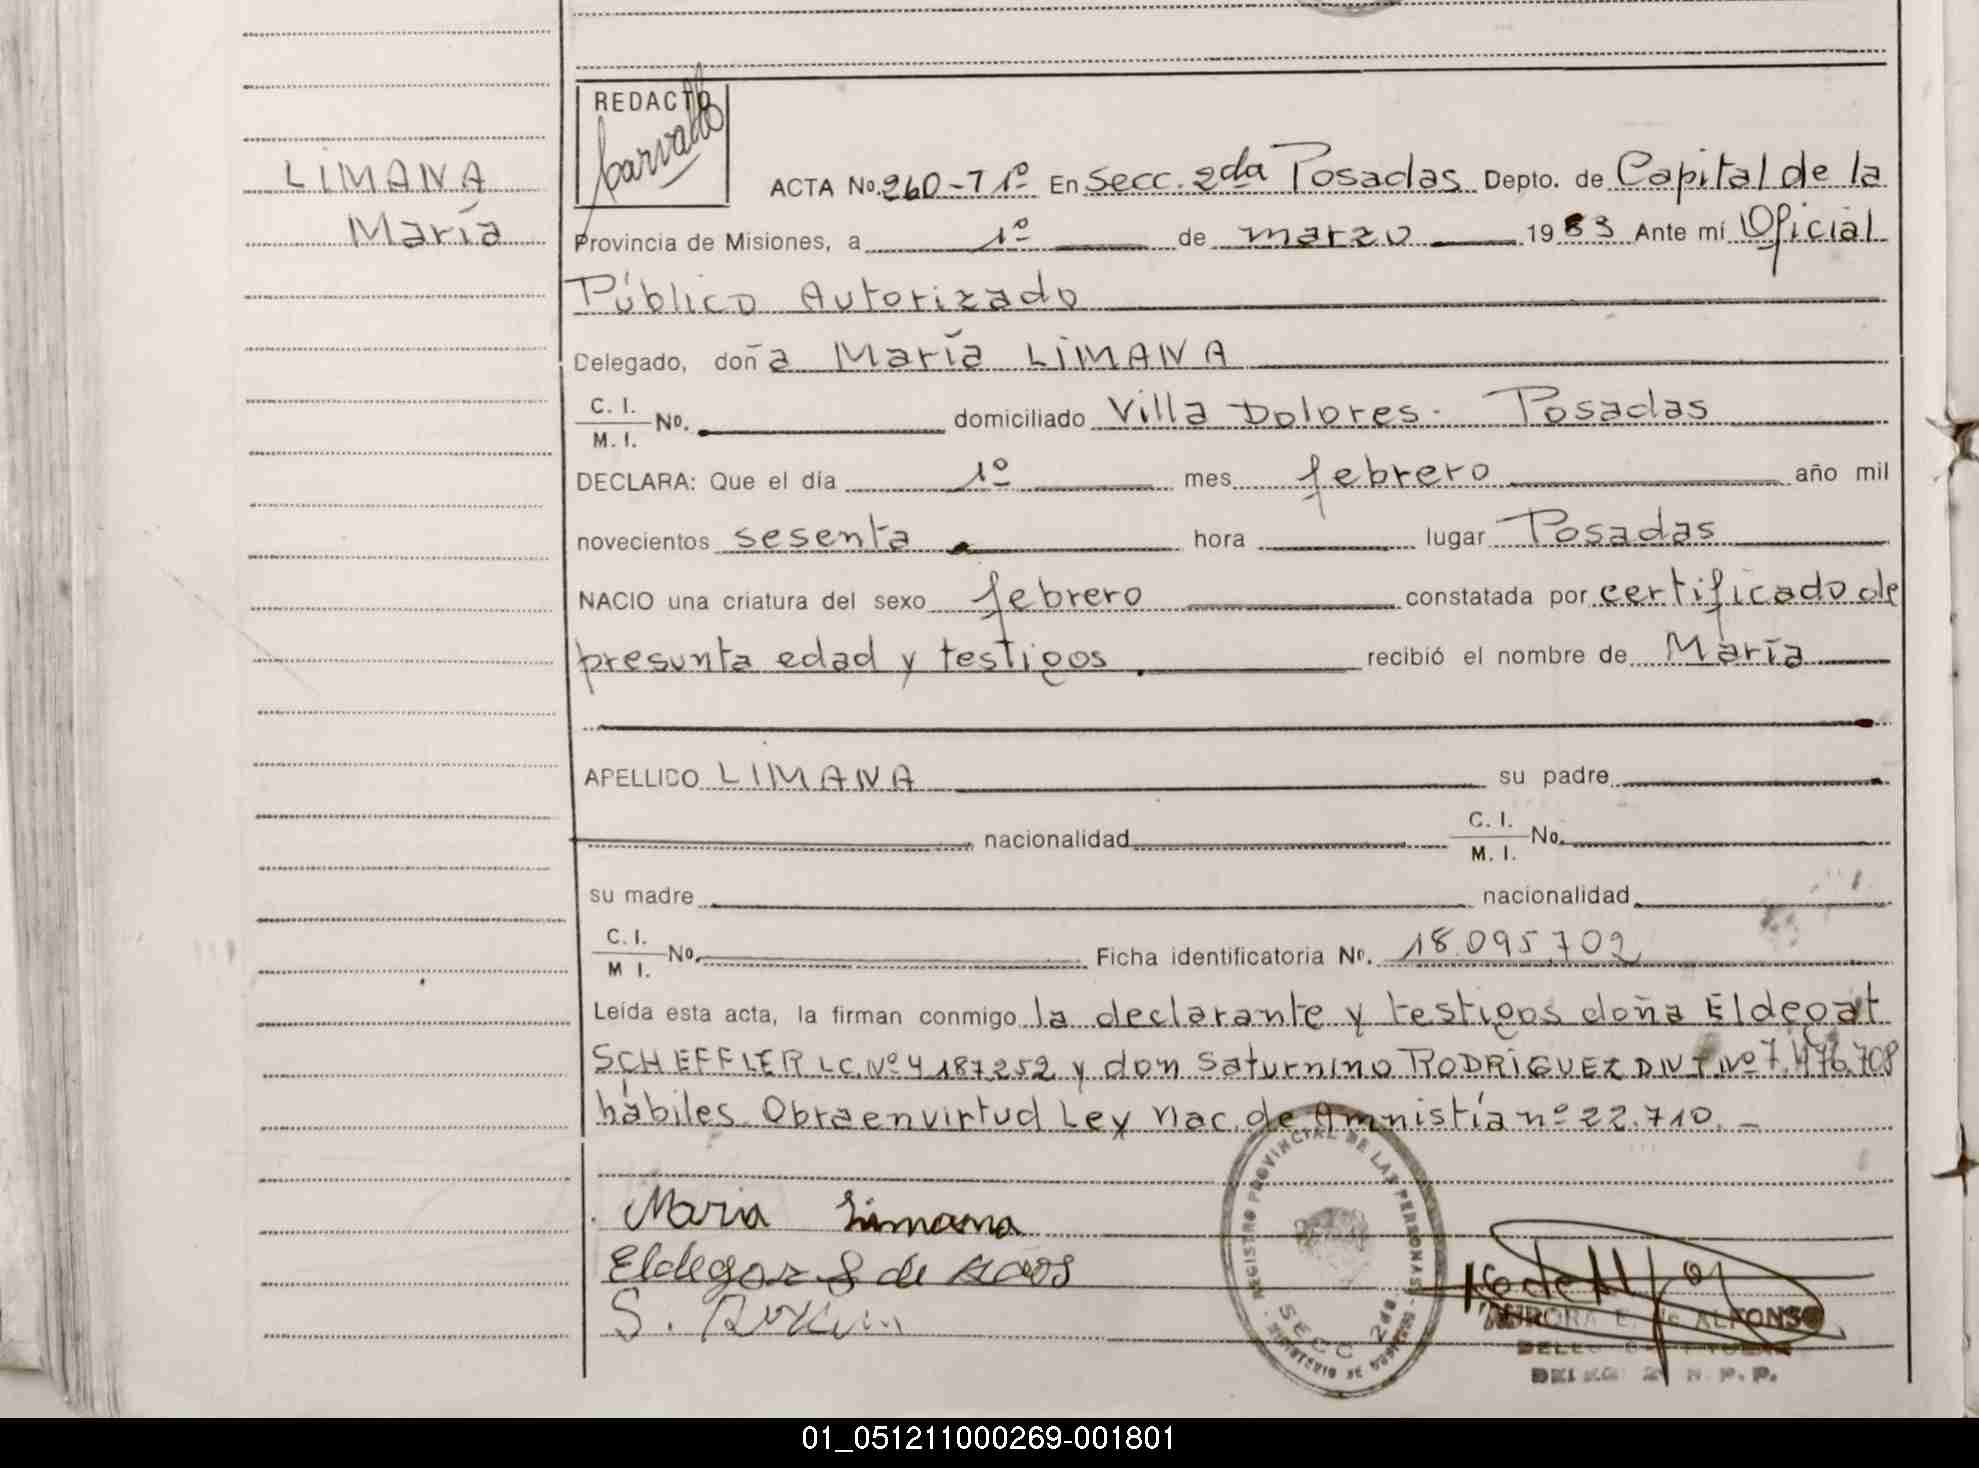 REDACTO
Carvallo
LIMANA
María
ACTA No. 260-T 1º En Secc. 2da Posadas Depto. de Capital de la
Provincia de Misiones, a 1º de marzo 1983 Ante mí Oficial
Público Autorizado
Delegado, doña María LIMANA
C. I.
M. I. No. domiciliado Villa Dolores - Posadas
DECLARA: Que el día 1º mes febrero año mil
novecientos sesenta hora lugar Posadas
NACIO una criatura del sexo febrero constatada por certificado de
presunta edad y testigos recibió el nombre de María
APELLIDO LIMANA su padre
nacionalidad C. I.
M. I. No.
su madre nacionalidad
C. I.
M I. No. Ficha identificatoria Nº. 18.095.702
Leída esta acta, la firman conmigo la declarante y testigos doña Eldegat
SCHEFFLER LC. Nº 4187.252 y don Saturnino RODRIGUEZ DNI Nº 7.476.708
hábiles. Obra en virtud Ley Nac. de Amnistía nº 22.710. –
Maria Limana
Eldegar S de
S.
REGISTRO PROVINCIAL DE LAS PERSONAS
SECC 2da
MINISTERIO DE GOBIERNO
AURORA E. de ALFONSO
R. P. P.
01_051211000269-001801